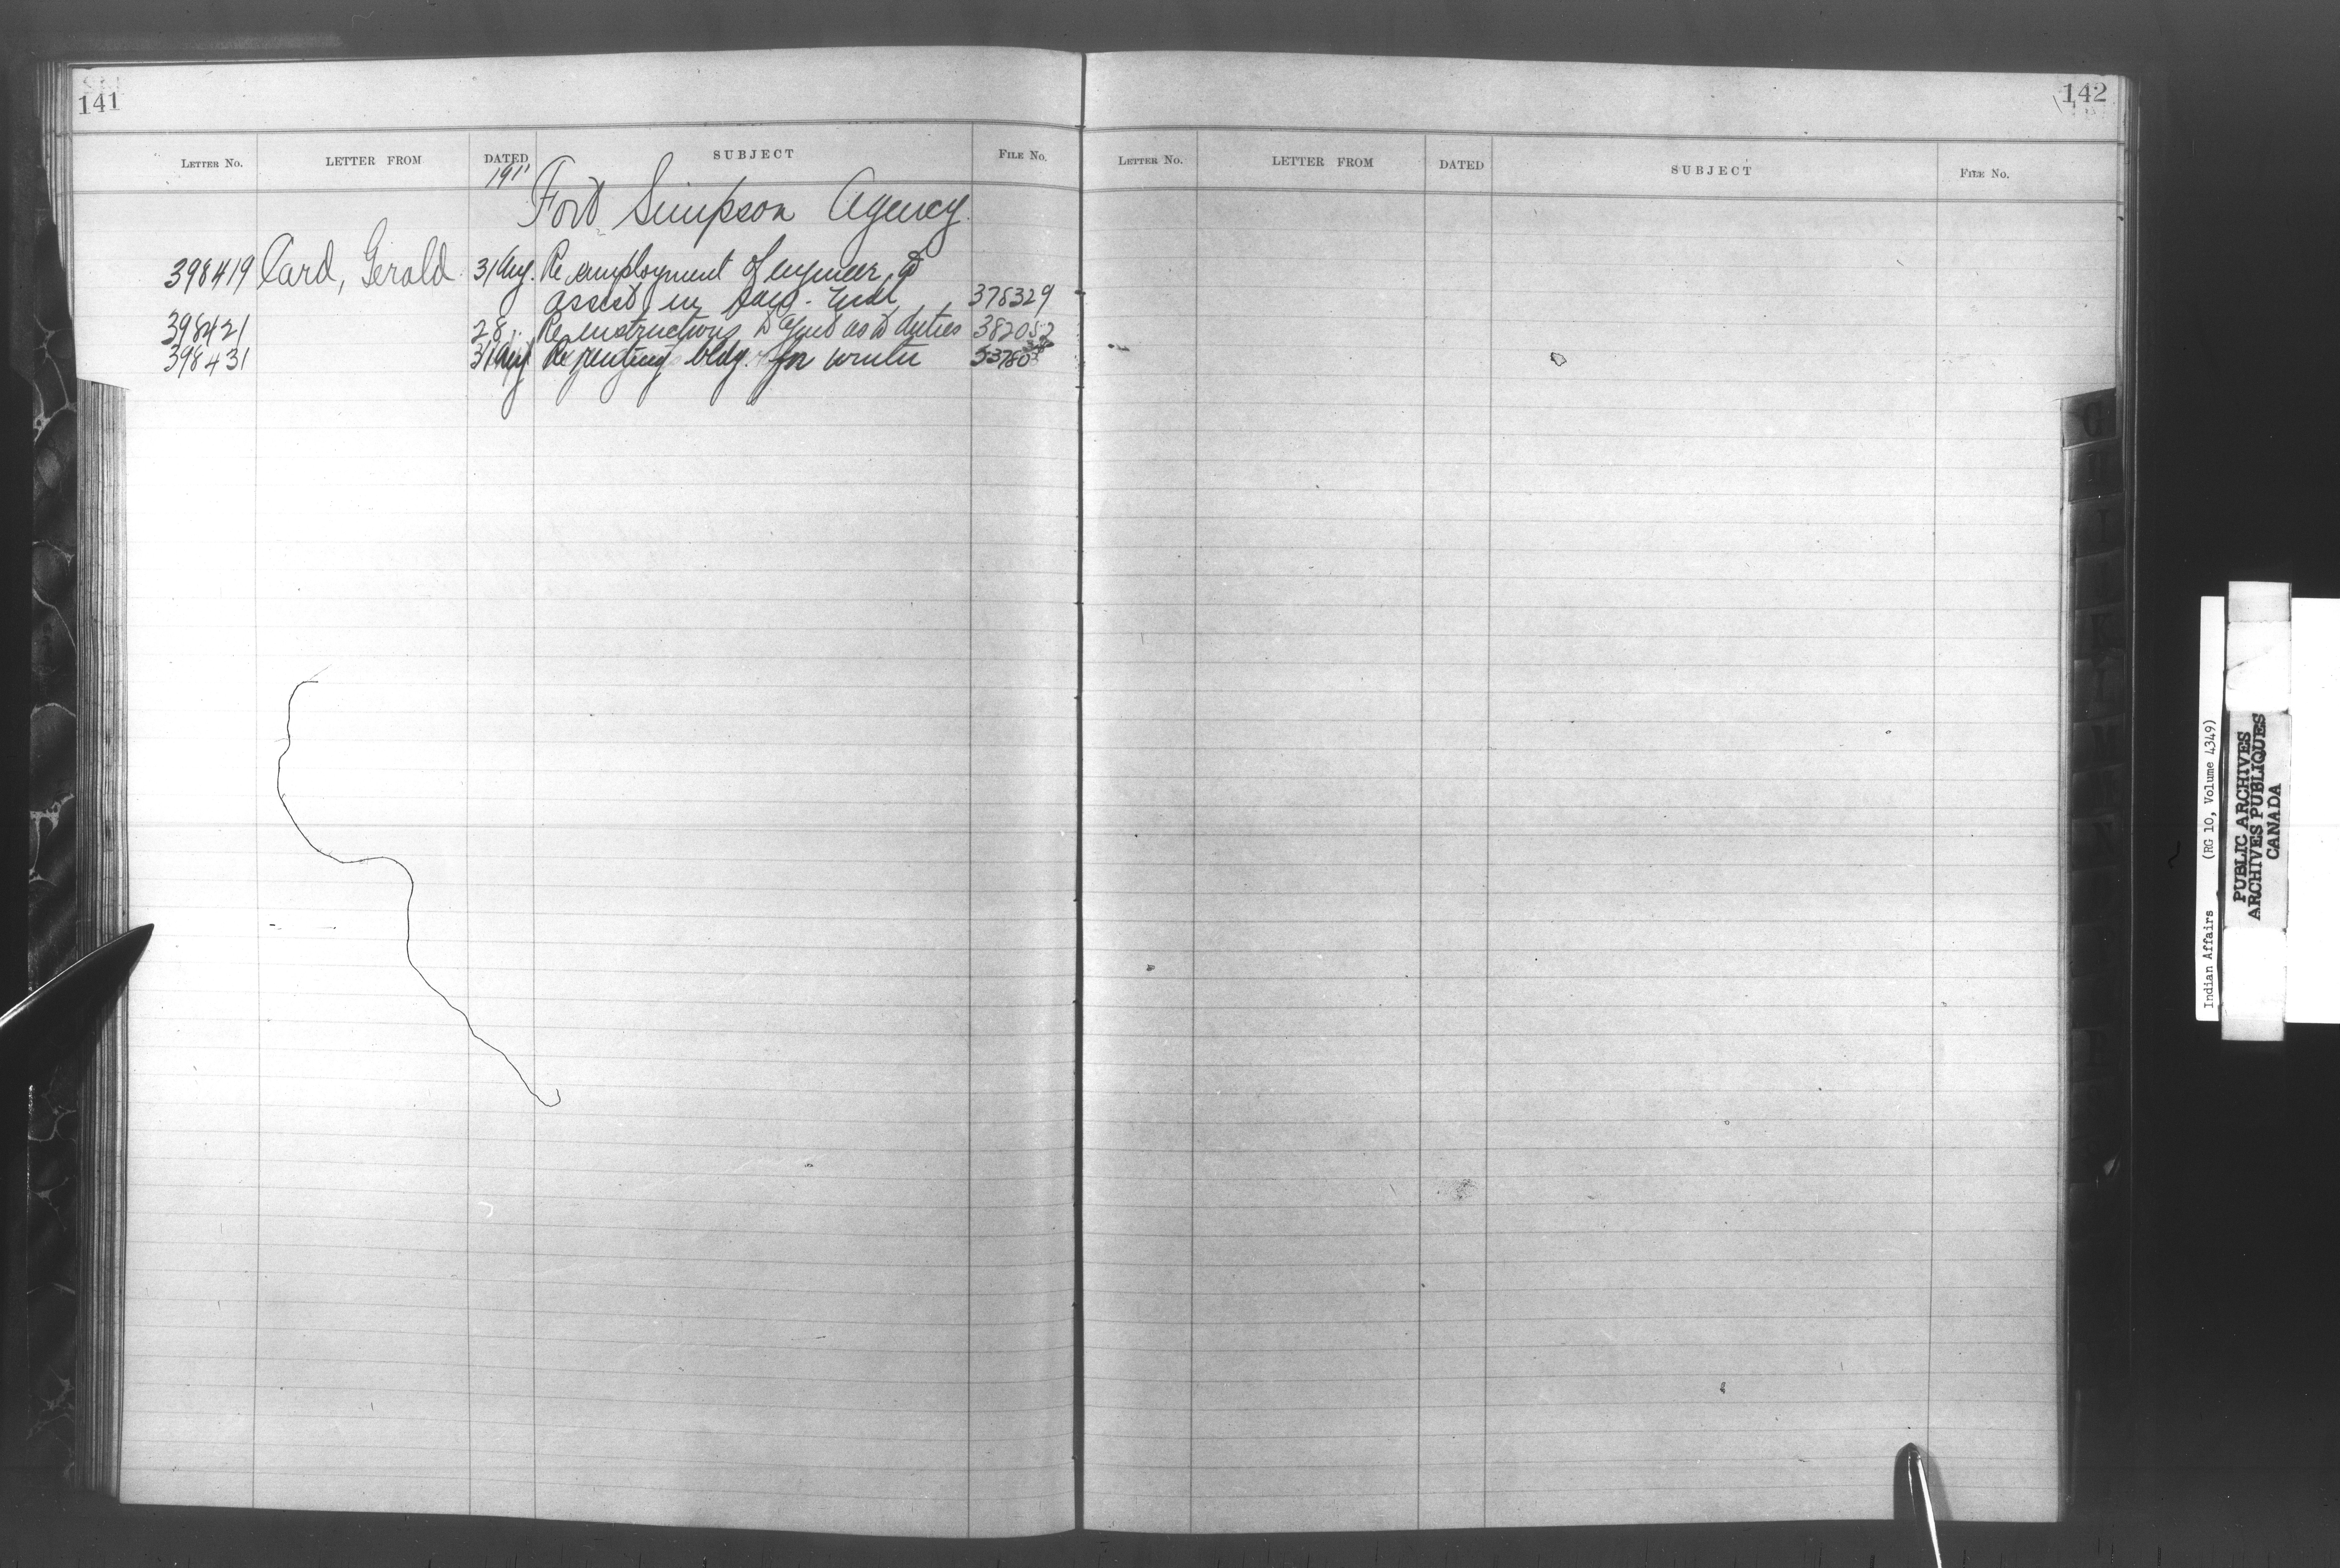 141
LETTER NO. LETTER FROM DATED SUBJECT FILE No.
1911
Fort Simpson Agency
398419 Card, Gerald 31 Aug. Re employment of engineer to
assist in saw-mill 378329
398421 28 " Re instructions to Agent as to duties 382052
398431 31 Aug Re renting bldg. for winter
142
LETTER NO. LETTER FROM DATED SUBJECT FILE No.
G
H
I
K
L
M
N
Indian Affairs (RG 10, Volume 4349)
PUBLIC ARCHIVES
ARCHIVES PUBLIQUES
CANADA